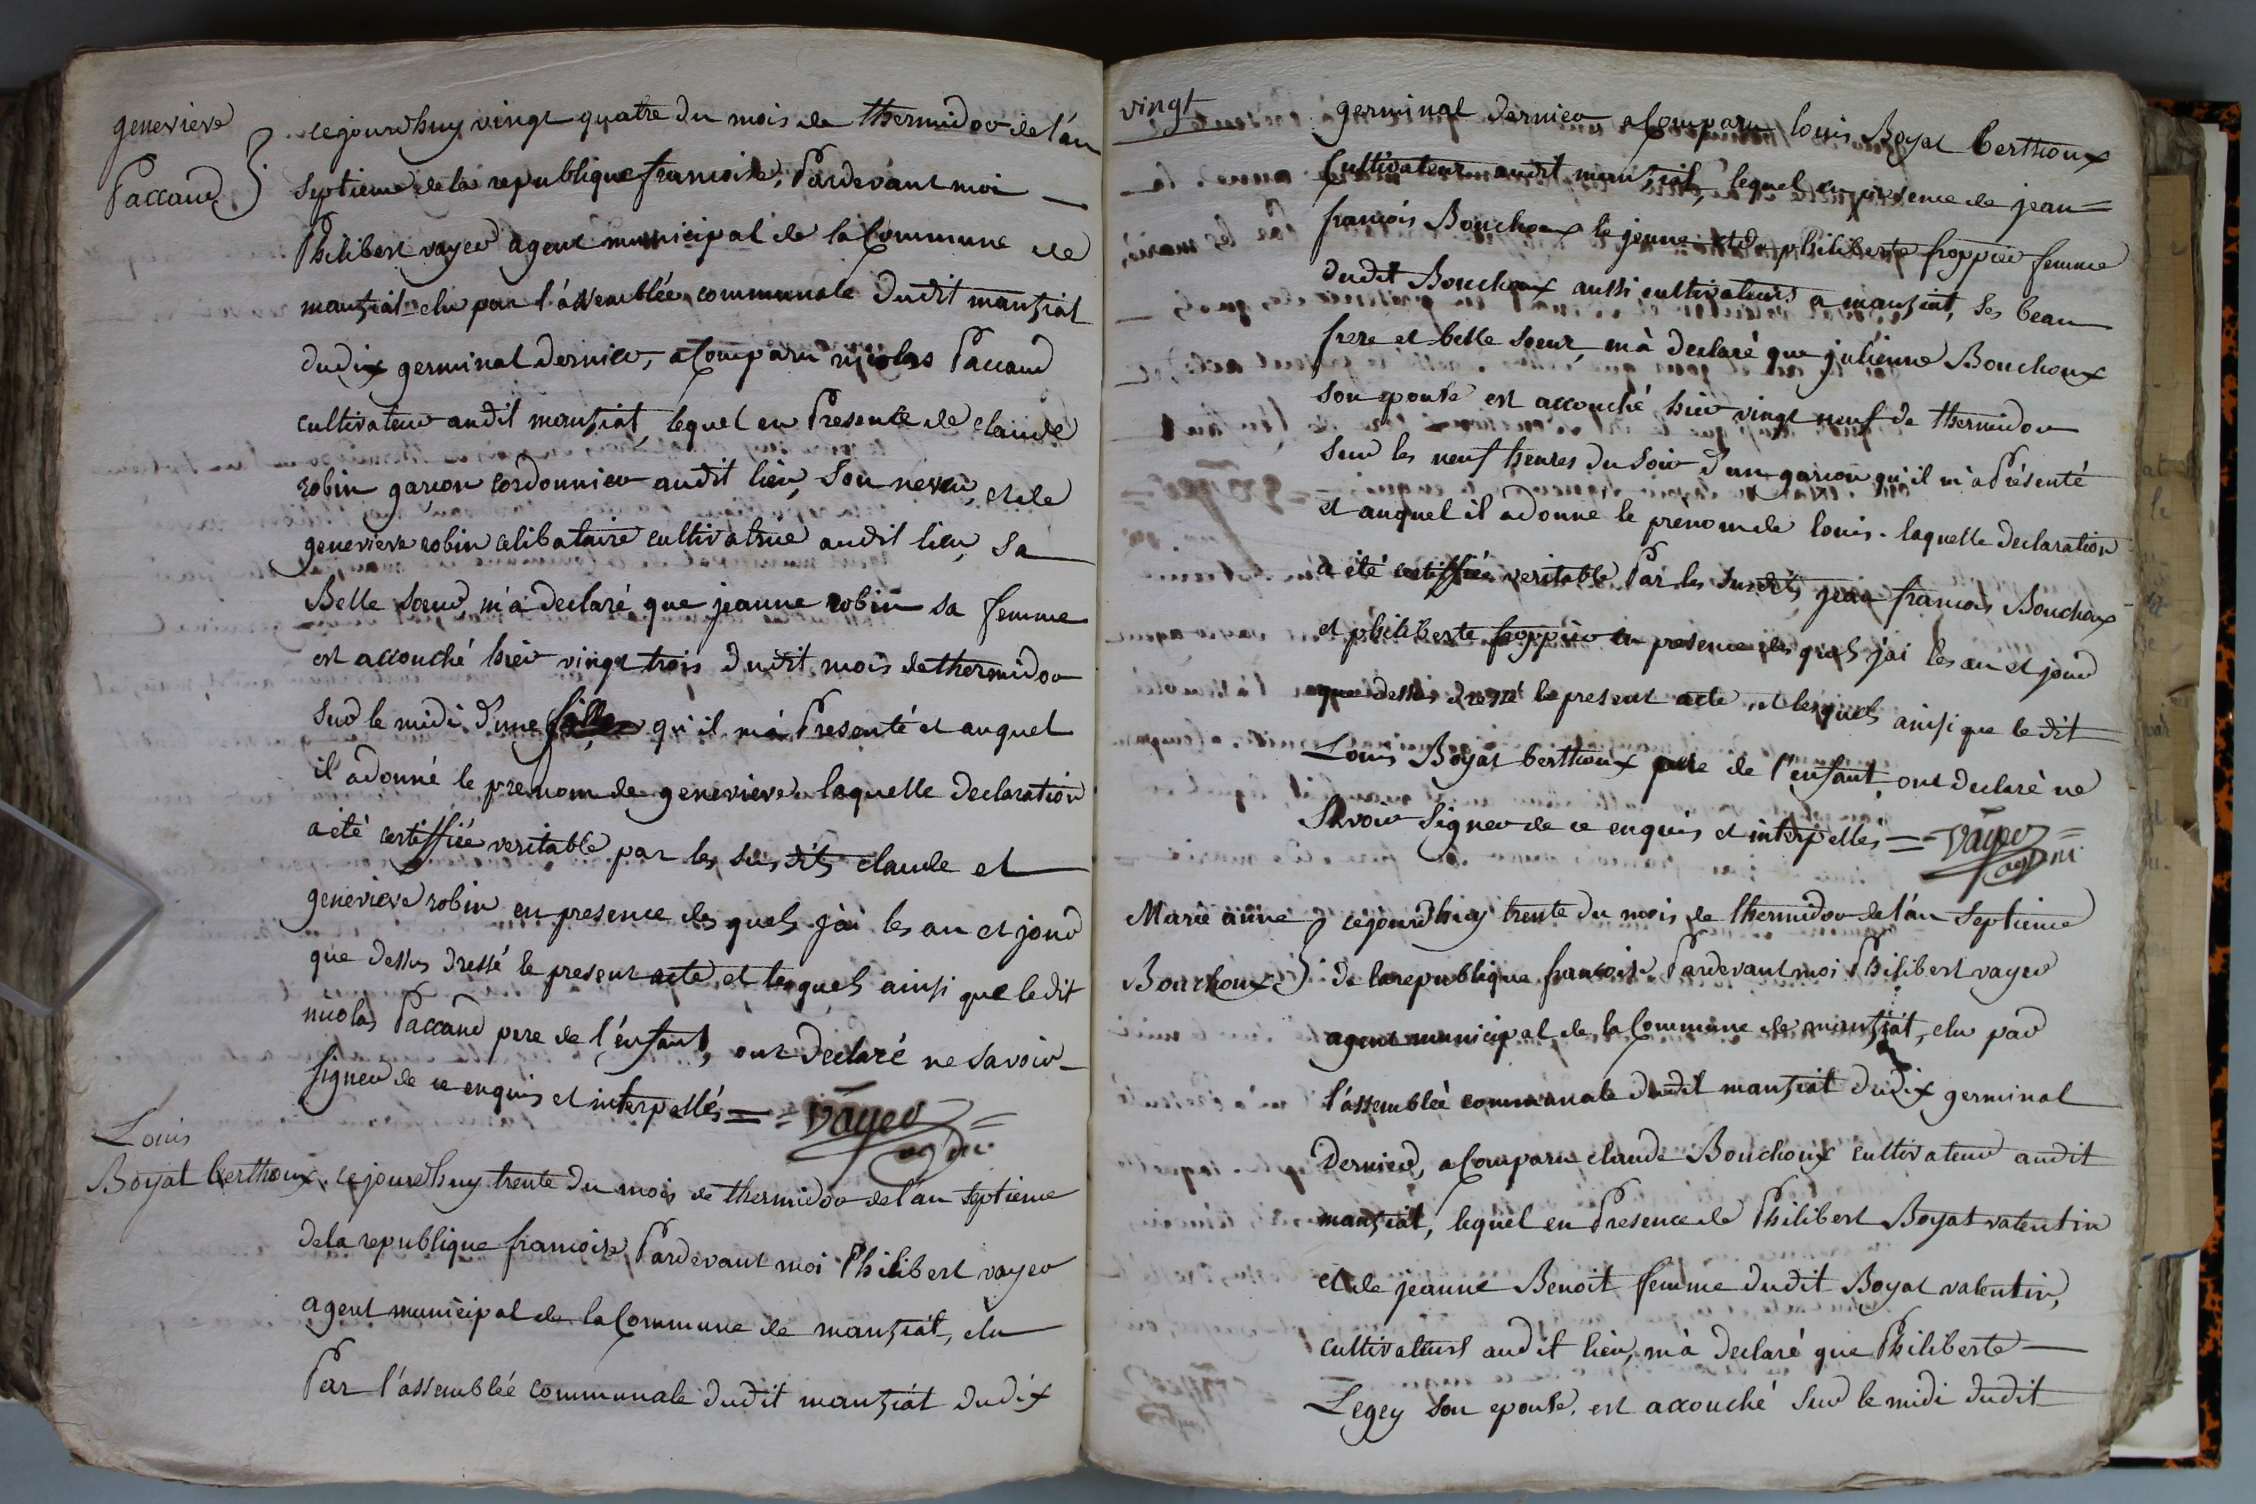 genevieve
Paccaud
cejourdhuy vingt quatre du mois de thermidor de l'an
septieme de la republique francoise, Pardevant moi
Philibert vayer agent municipal de la Commune de
mantziat elu par l'assemblée communale dudit mantziat
du dix germinal dernier, a Comparu nicolas Paccaud
cultivateur audit mantziat, lequel en Presence de claude
robin garcon cordonnier audit lieu, son neveu, et de
genevieve robin celibataire cultivatrice audit lieu, sa
Belle soeur, m'a declaré que jeanne robin sa femme
est accouché hier vingt trois dudit mois de thermidor
sur le midi d'une fille qu'il m'a Presenté et auquel
il a donné le prenom de genevieve laquelle declaration
a été certiffiée veritable par les susdits claude et
genevieve robin en presence des quels j'ai les an et jour
que dessus dressé le present acte, et lesquels ainsi que ledit
nicolas Paccaud pere de l'enfant, ont declaré ne savoir
signer de ce enquis et interpellés = = vayer =
ag mu
Louis
Boyat berthoux
cejourdhuy trente du mois de thermidor de l'an septieme
de la republique francoise, Pardevant moi Philibert vayer
agent municipal de la Commune de mantziat, elu
Par l'assemblée communale dudit mantziat du dix
vingt
germinal dernier, a Comparu louis Boyat berthoux
Cultivateur audit mantziat, lequel en presence de jean
francois Bouchoux le jeune et de philiberte froppier femme
dudit Bouchoux aussi cultivateurs a mantziat, ses beau
frere et belle soeur, m'à declaré que julienne Bouchoux
son epouse est accouché hier vingt neuf de thermidor
sur les neuf heures du soir d'un garcon qu'il m'a Présenté
et auquel il a donne le prènom de louis. laquelle declaration
a été certiffiée veritable Par les susdits jean francois Bouchoux
et philiberte froppier en presence des quels j'ai les an et jour
que dessus dressé le present acte et lesquels ainsi que le dit
Louis Boyat berthoux pere de l'enfant, ont declarè ne
Savoir signer de ce enquis et interpellés = = vayer =
ag mu
Marie anne
Bouchoux
cejourdhuy trente du mois de thermidor de l'an septieme
de la republique francoise Pardevant moi Philibert vayer
agent municipal de la Commune de mantziat, elu par
l'assemblèe communale dudit mantziat du dix germinal
Dernier, a Comparu claude Bouchoux cultivateur audit
mantziat, lequel en Presence de Philibert Boyat valentin
et de jeanne Benoit femme dudit Boyat valentin,
cultivateurs audit lieu, m'à declaré que Philiberte
Legey son epouse, est accouché sur le midi dudit